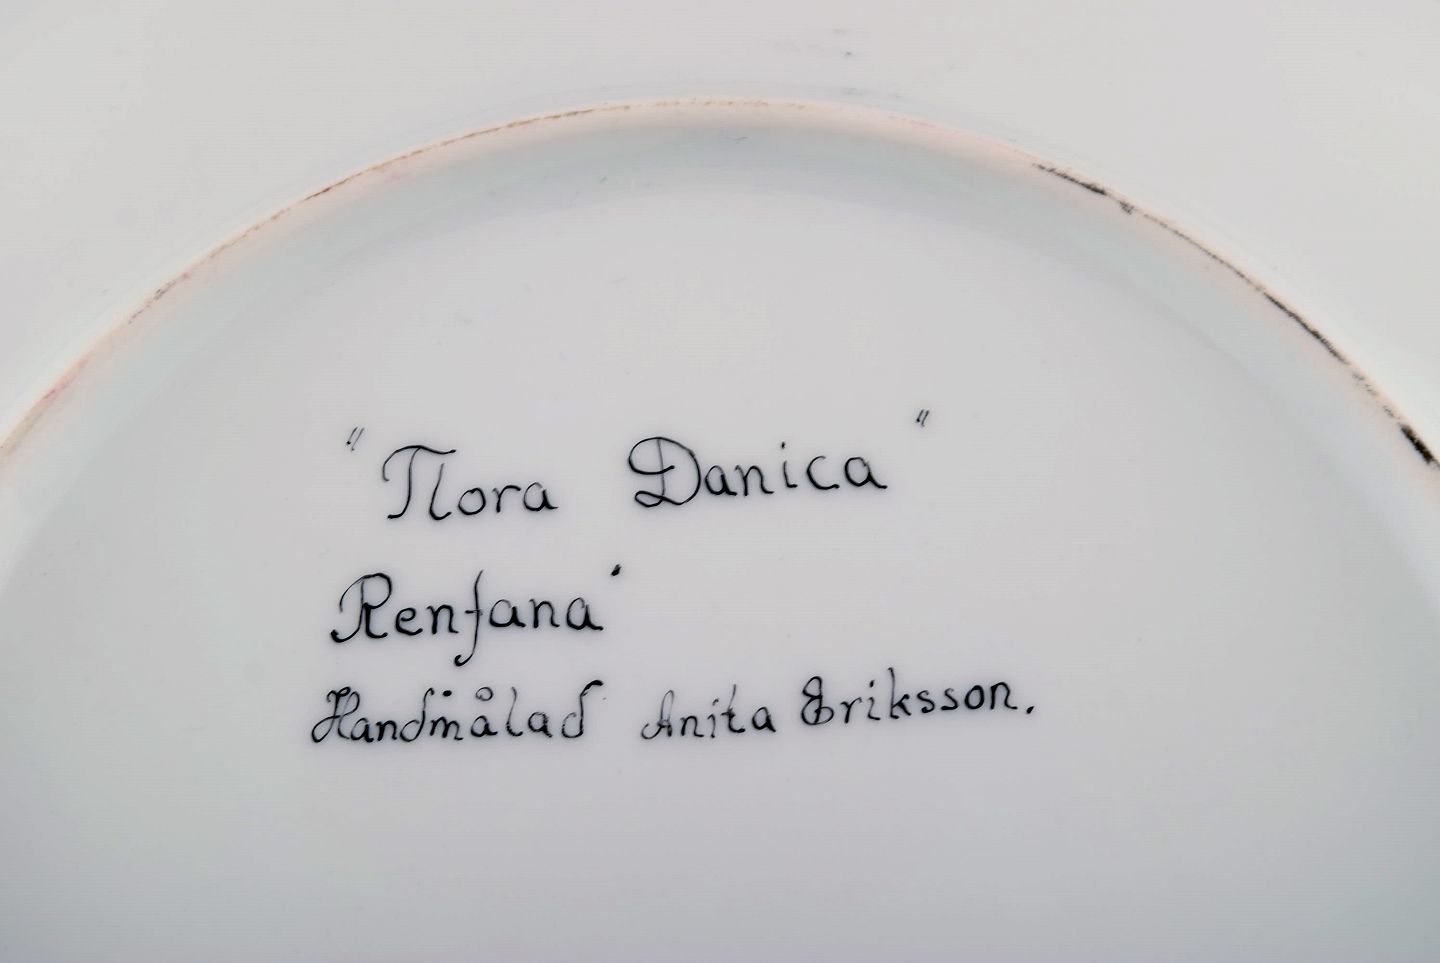 "Flora Danica"
Renfana
Handmålad Anita Eriksson.